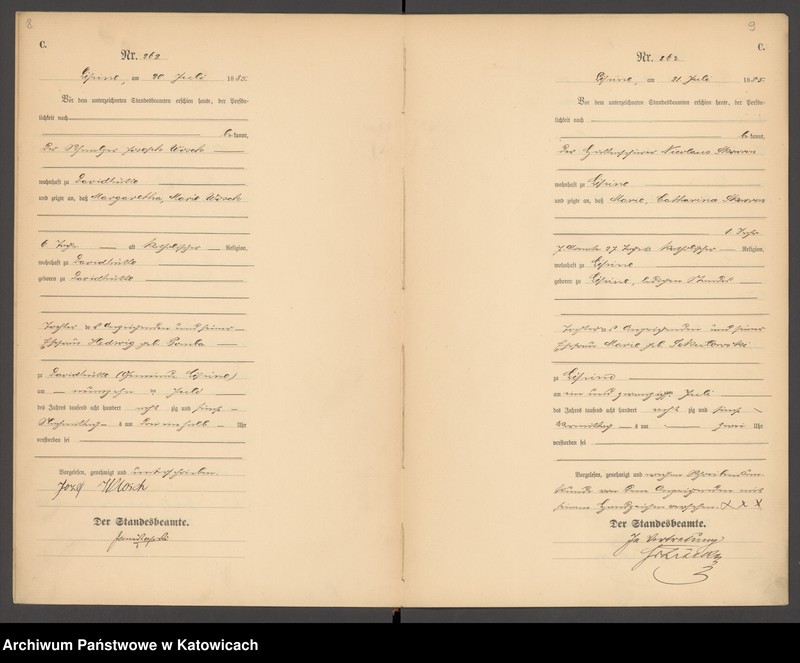 8
C.
Nr. 262
am 20 Juli 1885.
Vor dem unterzeichneten Standesbeamten erschien heute, der Persön-
lichkeit nach
be kannt,
der Joseph
wohnhaft zu Davidhütte
und zeigte an, daß Margaretha, Marie
6 Jahre alt katholischer Religion,
wohnhaft zu Davidhütte
geboren zu Davidhütte
Tochter des Anzeigenden und seiner
Ehefrau Hedwig geb.
zu Davidhütte (Gemeinde
am neunzehn ten Juli
des Jahres tausend acht hundert acht zig und fünf
Nachmittag s um Uhr
verstorben sei
Vorgelesen, genehmigt und unterschrieben.
Josef Wlosch
Der Standesbeamte.
9
C.
Nr. 262
am 21 Juli 1885.
Vor dem unterzeichneten Standesbeamten erschien heute, der Persön-
lichkeit nach
be kannt,
der Nicolaus
wohnhaft zu
und zeigte an, daß Marie, Catharina
1 Jahr
7 Monate 27 Tage katholischer Religion,
wohnhaft zu
geboren zu ledigen Standes
Tochter des Anzeigenden und seiner
Ehefrau Marie geb.
zu
am ein und zwanzigsten Juli
des Jahres tausend acht hundert acht zig und fünf
Vormittag s um zwei Uhr
verstorben sei
Vorgelesen, genehmigt und wegen Schreibensun-
kunde von dem Anzeigenden mit
seinem Handzeichen versehen. X X X
Der Standesbeamte.
In Vertretung
Archiwum Państwowe w Katowicach